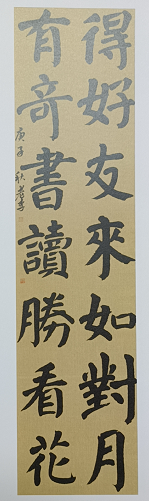 得好友來如對月
有奇書讀勝看花
庚子秋